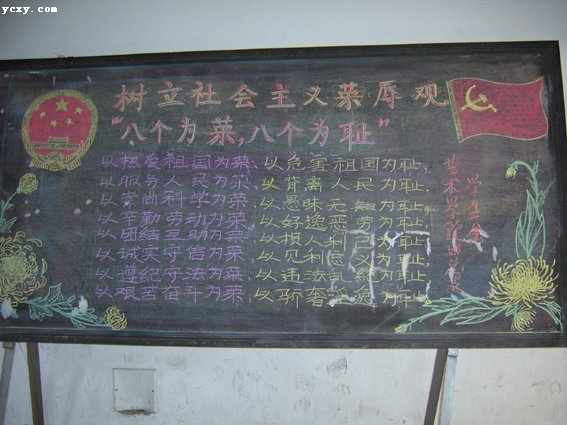 ycxy.com
树立社会主义荣辱观
"八个为荣,八个为耻"
以热爱祖国为荣,以危害祖国为耻,
以服务人民为荣,以背离人民为耻,
以崇尚科学为荣,以愚昧无知为耻,
以辛勤劳动为荣,以好逸恶劳为耻,
以团结互助为荣,以损人利己为耻,
以诚实守信为荣,以见利忘义为耻,
以遵纪守法为荣,以违法乱纪为耻,
以艰苦奋斗为荣,以骄奢淫逸为耻。
艺术学院
学生会